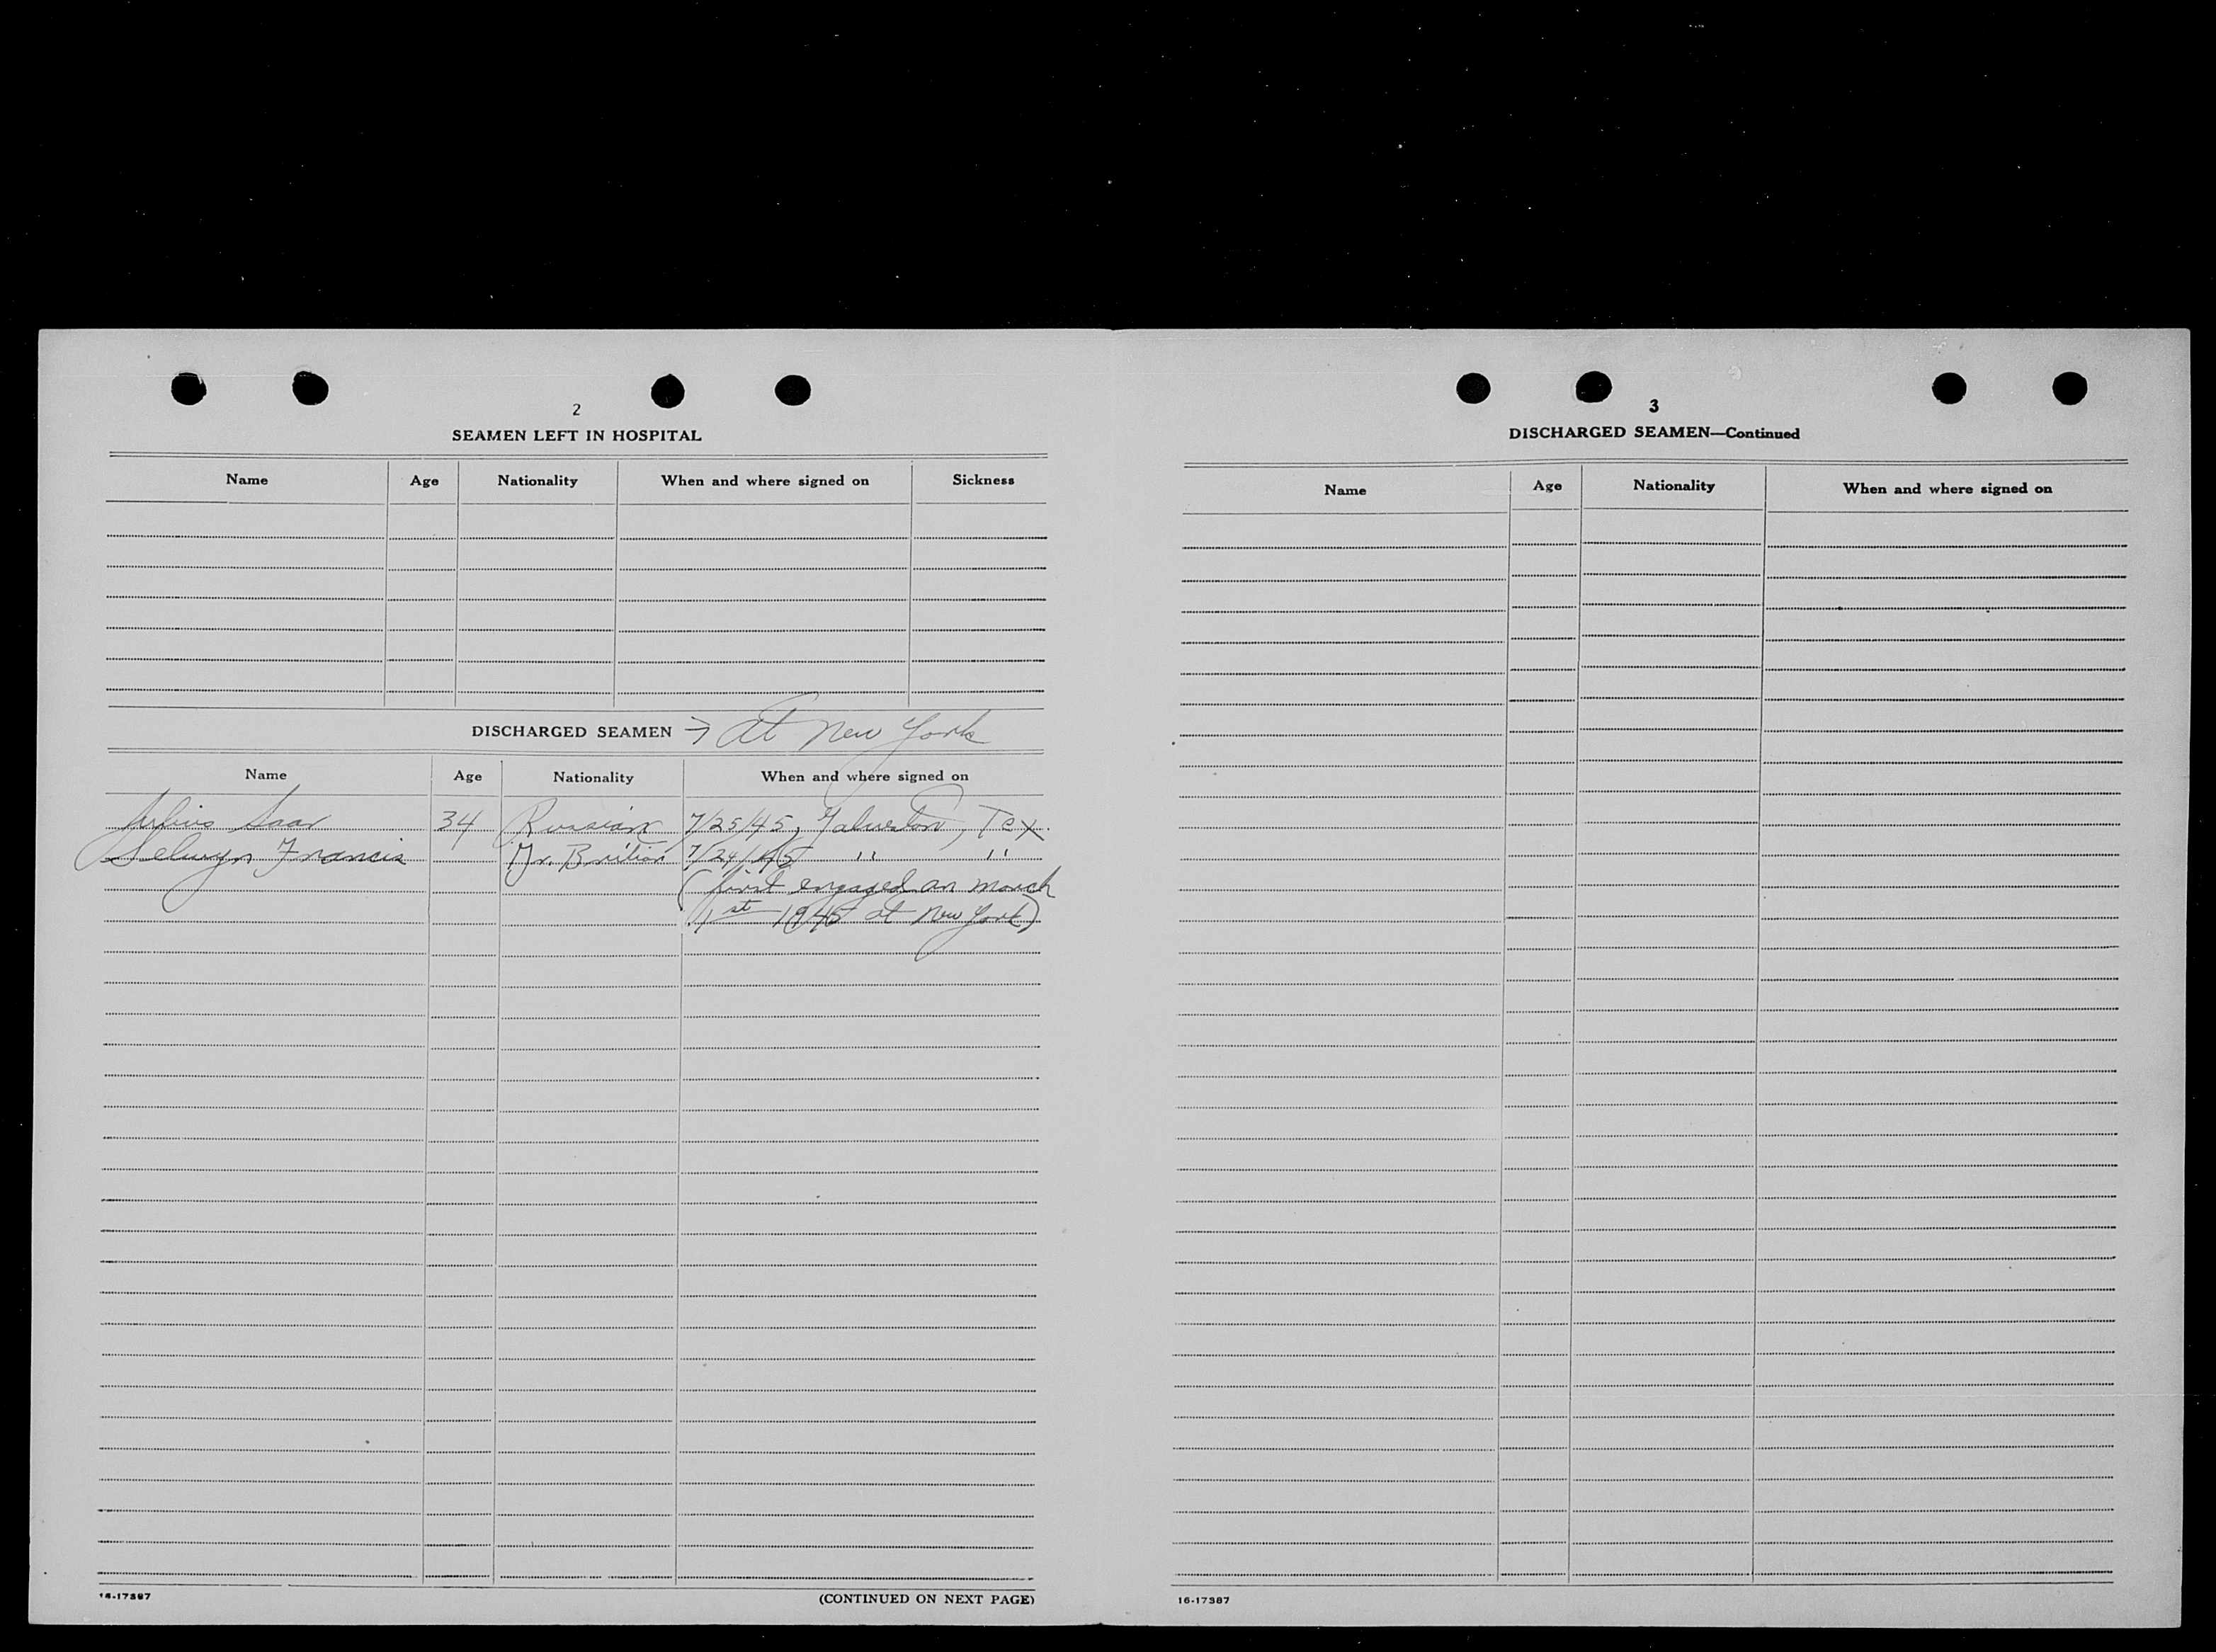 2
SEAMEN LEFT IN HOSPITAL
Name Age Nationality When and where signed on Sickness
DISCHARGED SEAMEN → at New York
Name Age Nationality When and where signed on
Julius Saar 34 Russian 7/25/45, Galveston, Tex.
Selwyn Francis 7/24/45 " "
(first engaged on march
1st 1945 at New York)
16-17387 (CONTINUED ON NEXT PAGE)
3
DISCHARGED SEAMEN—Continued
Name Age Nationality When and where signed on
16-17387